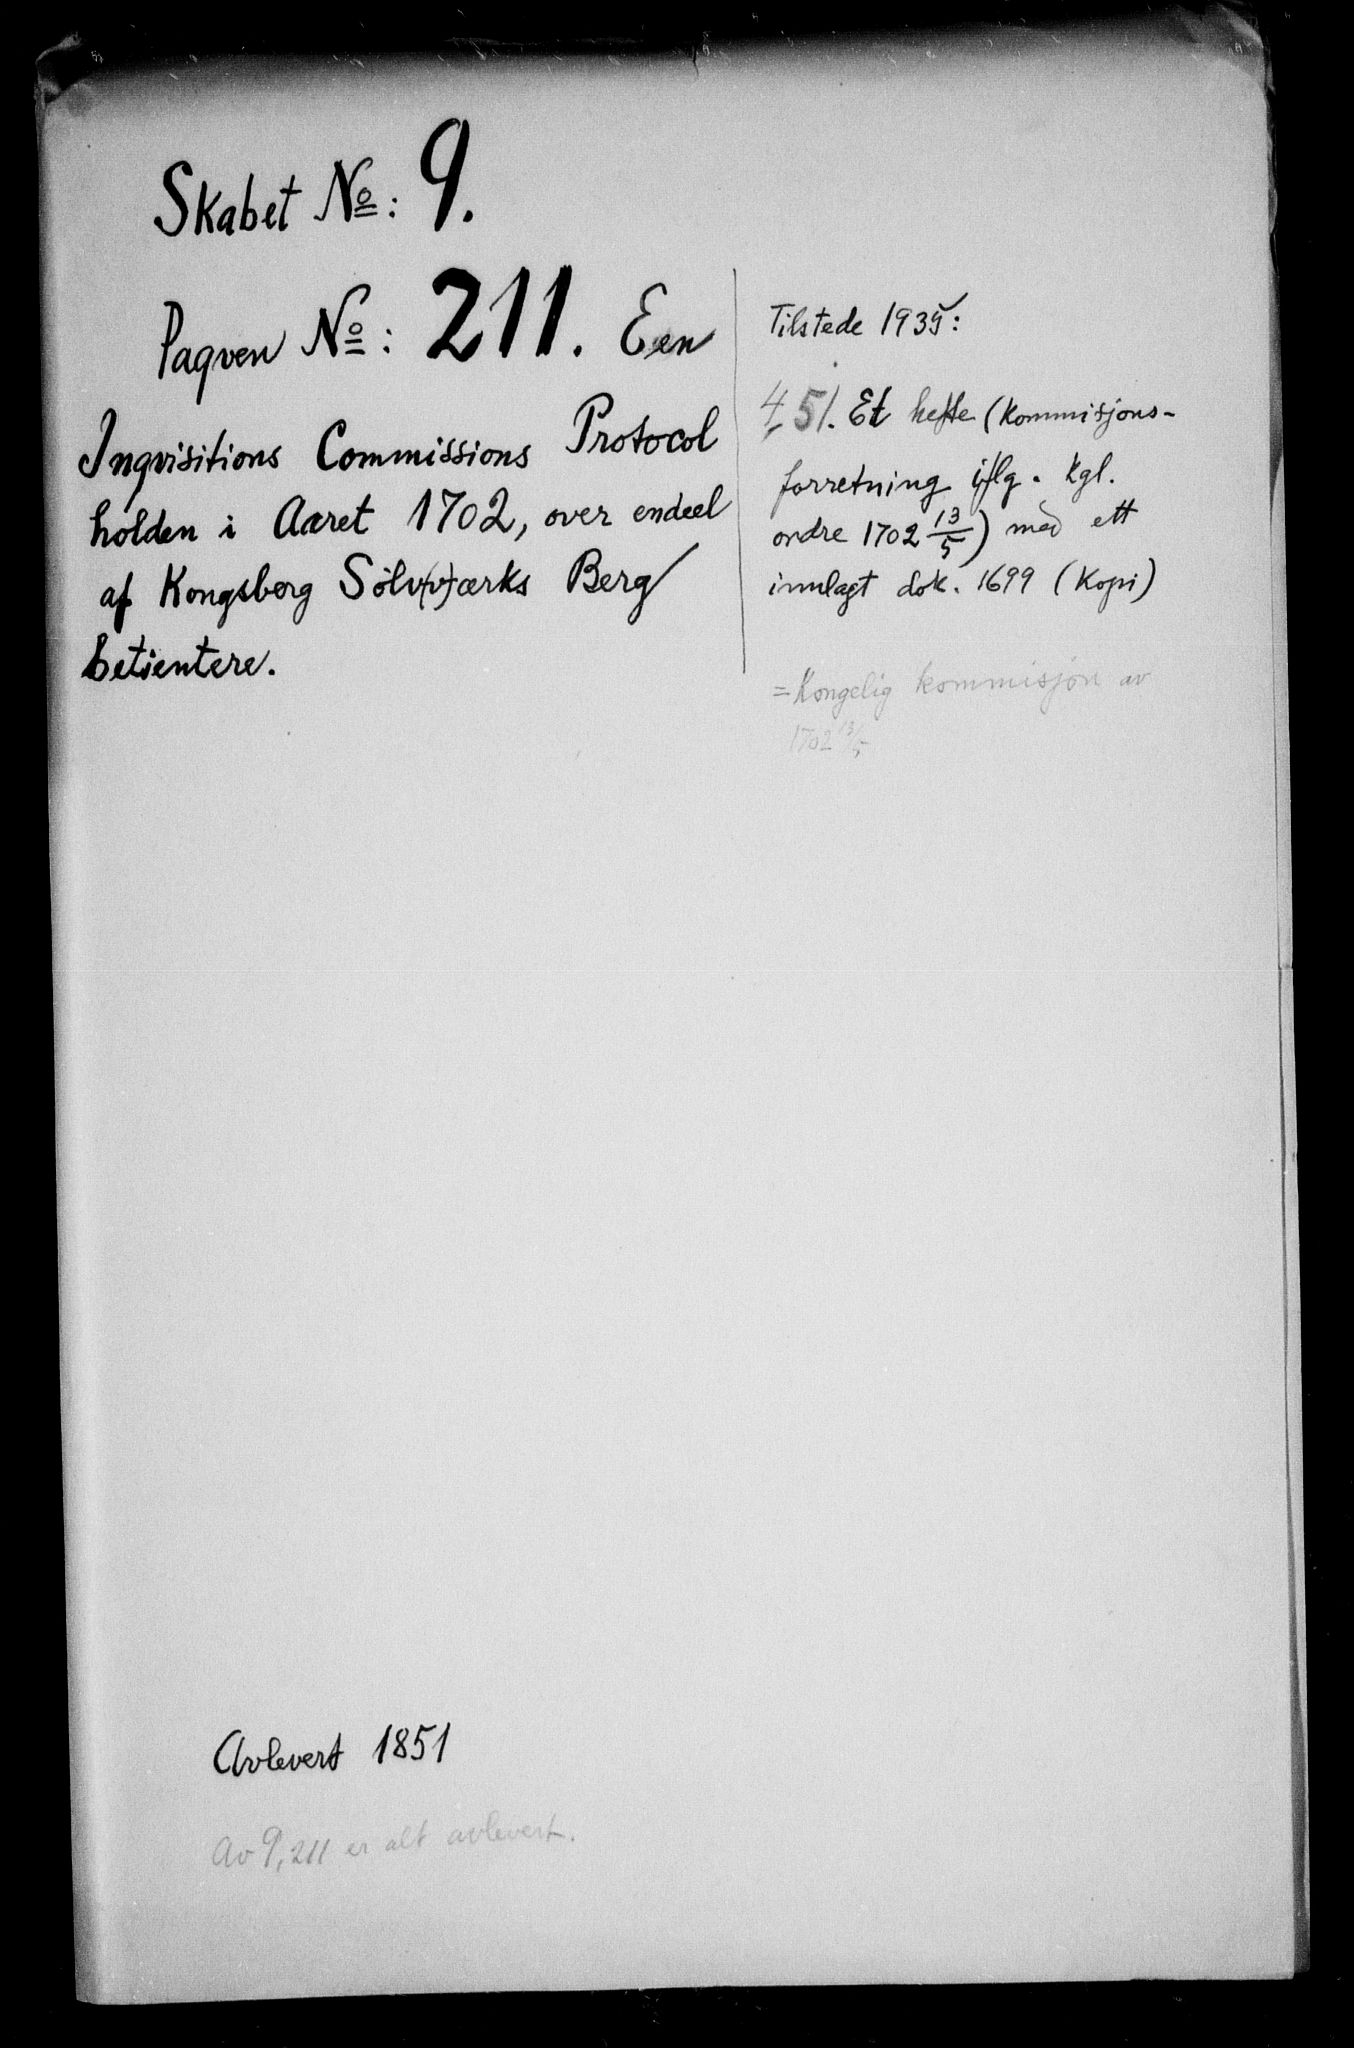 Skabet No: 9.
Paqven No: 211. Een
Inqvisitions Commissions Protocol
holden i Aaret 1702, over endeel
af Kongsberg Sølv(v)ærks Berg
betientere.
Tilstede 1935:
4, 51. Et hefte (kommisjons-
forretning iflg. kgl.
ordre 1702 13/5) med ett
innlagt dok. 1699 (kopi)
= Kongelig kommisjon av
1702 13/5
Avlevert 1851
Av 9, 211 er alt avlevert.